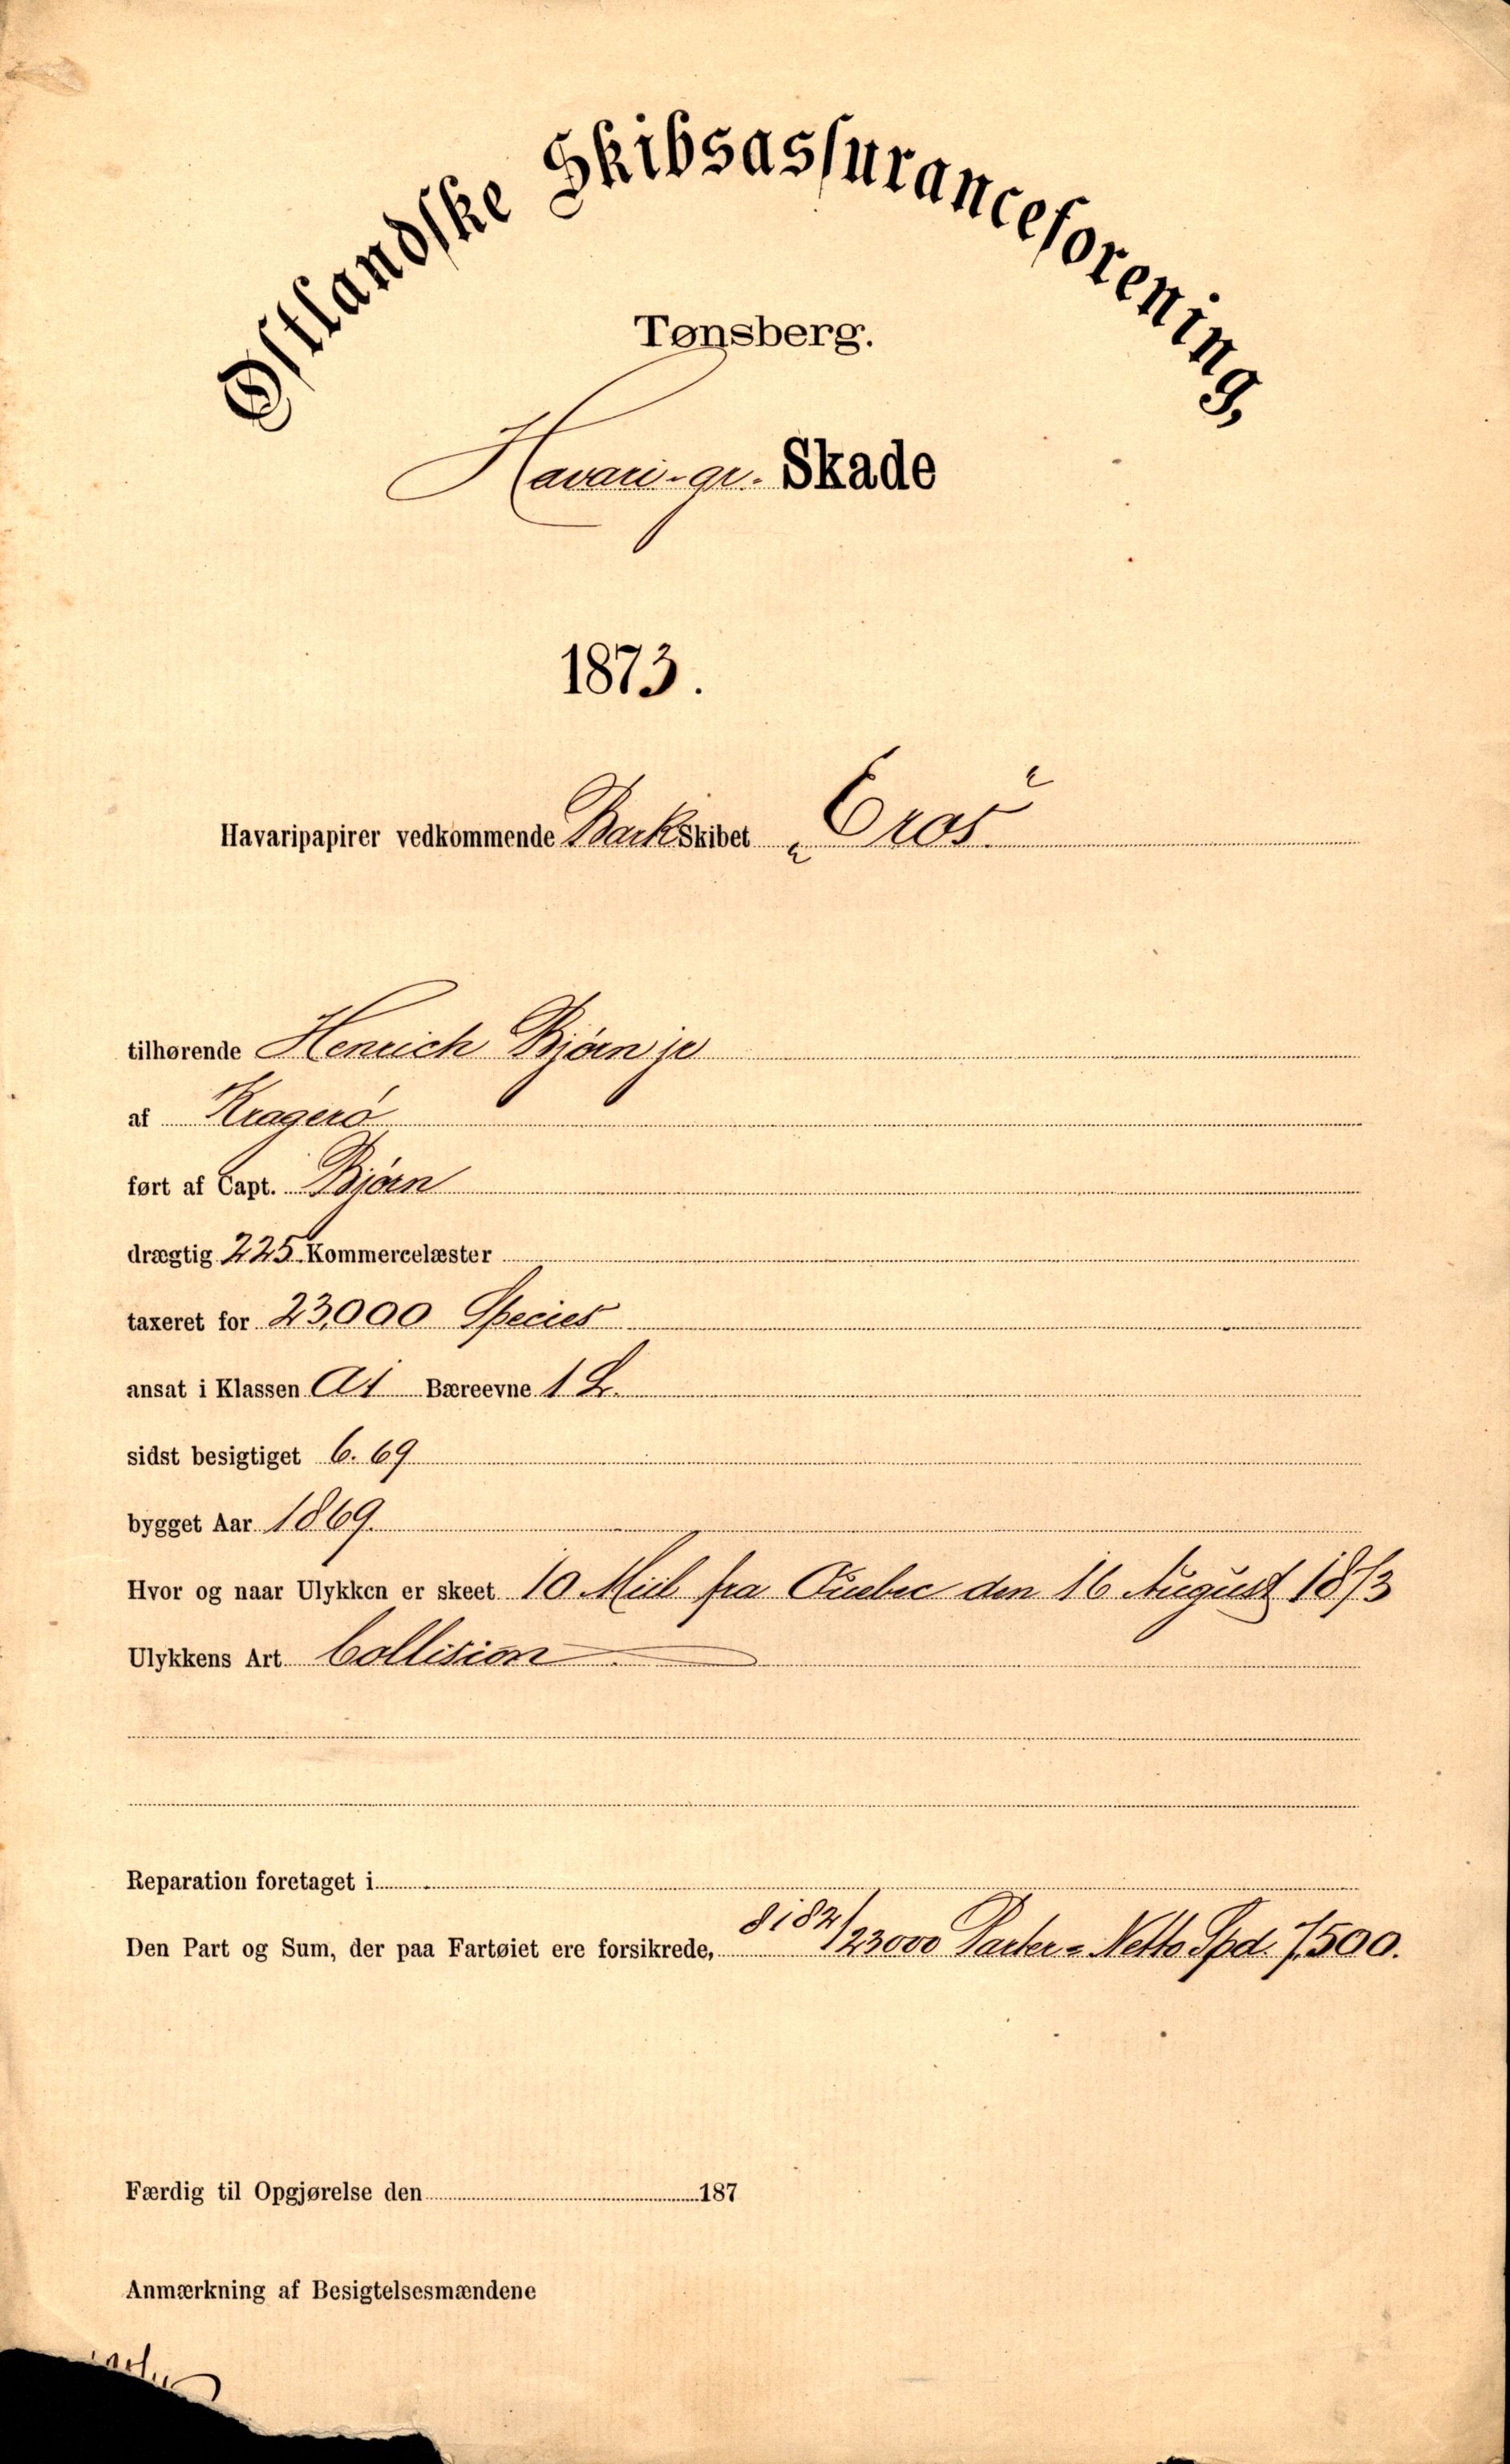 Østlandske Skibsassuranceforening,
Tønsberg.
Havari-gr. Skade
1873.
Havaripapirer vedkommende Bark Skibet „Eros“
tilhørende Henrich Bjørn jr
af Kragerø
ført af Capt. Bjørn
drægtig 225 Kommercelæster
taxeret for 23,000 Species
ansat i Klassen A1 Bæreevne 1 L.
sidst besigtiget 6. 69
bygget Aar 1869.
Hvor og naar Ulykken er skeet 10 Miil fra Quebec den 16 August 1873
Ulykkens Art Collision
Reparation foretaget i
Den Part og Sum, der paa Fartøiet ere forsikrede, 8182/23000 Parter = Netto Spd. 7,500.
Færdig til Opgjørelse den 187
Anmærkning af Besigtelsesmændene